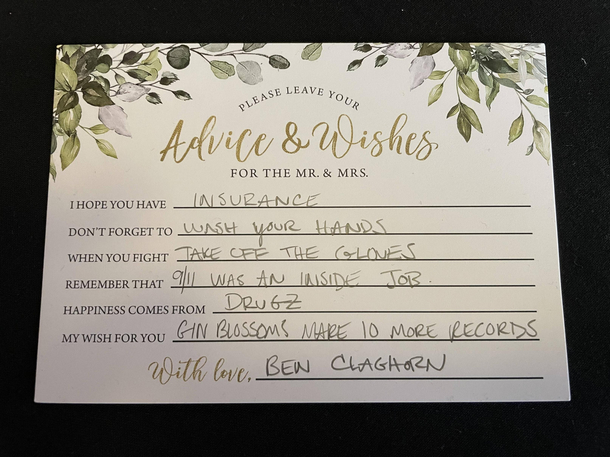 PLEASE LEAVE YOUR
Advice & Wishes
FOR THE MR. & MRS.
I HOPE YOU HAVE INSURANCE
DON'T FORGET TO WASH YOUR HANDS
WHEN YOU FIGHT TAKE OFF THE GLOVES
REMEMBER THAT 9/11 WAS AN INSIDE JOB.
HAPPINESS COMES FROM DRUGZ
MY WISH FOR YOU GIN BLOSSOMS MAKE 10 MORE RECORDS
With love, BEN CLAGHORN